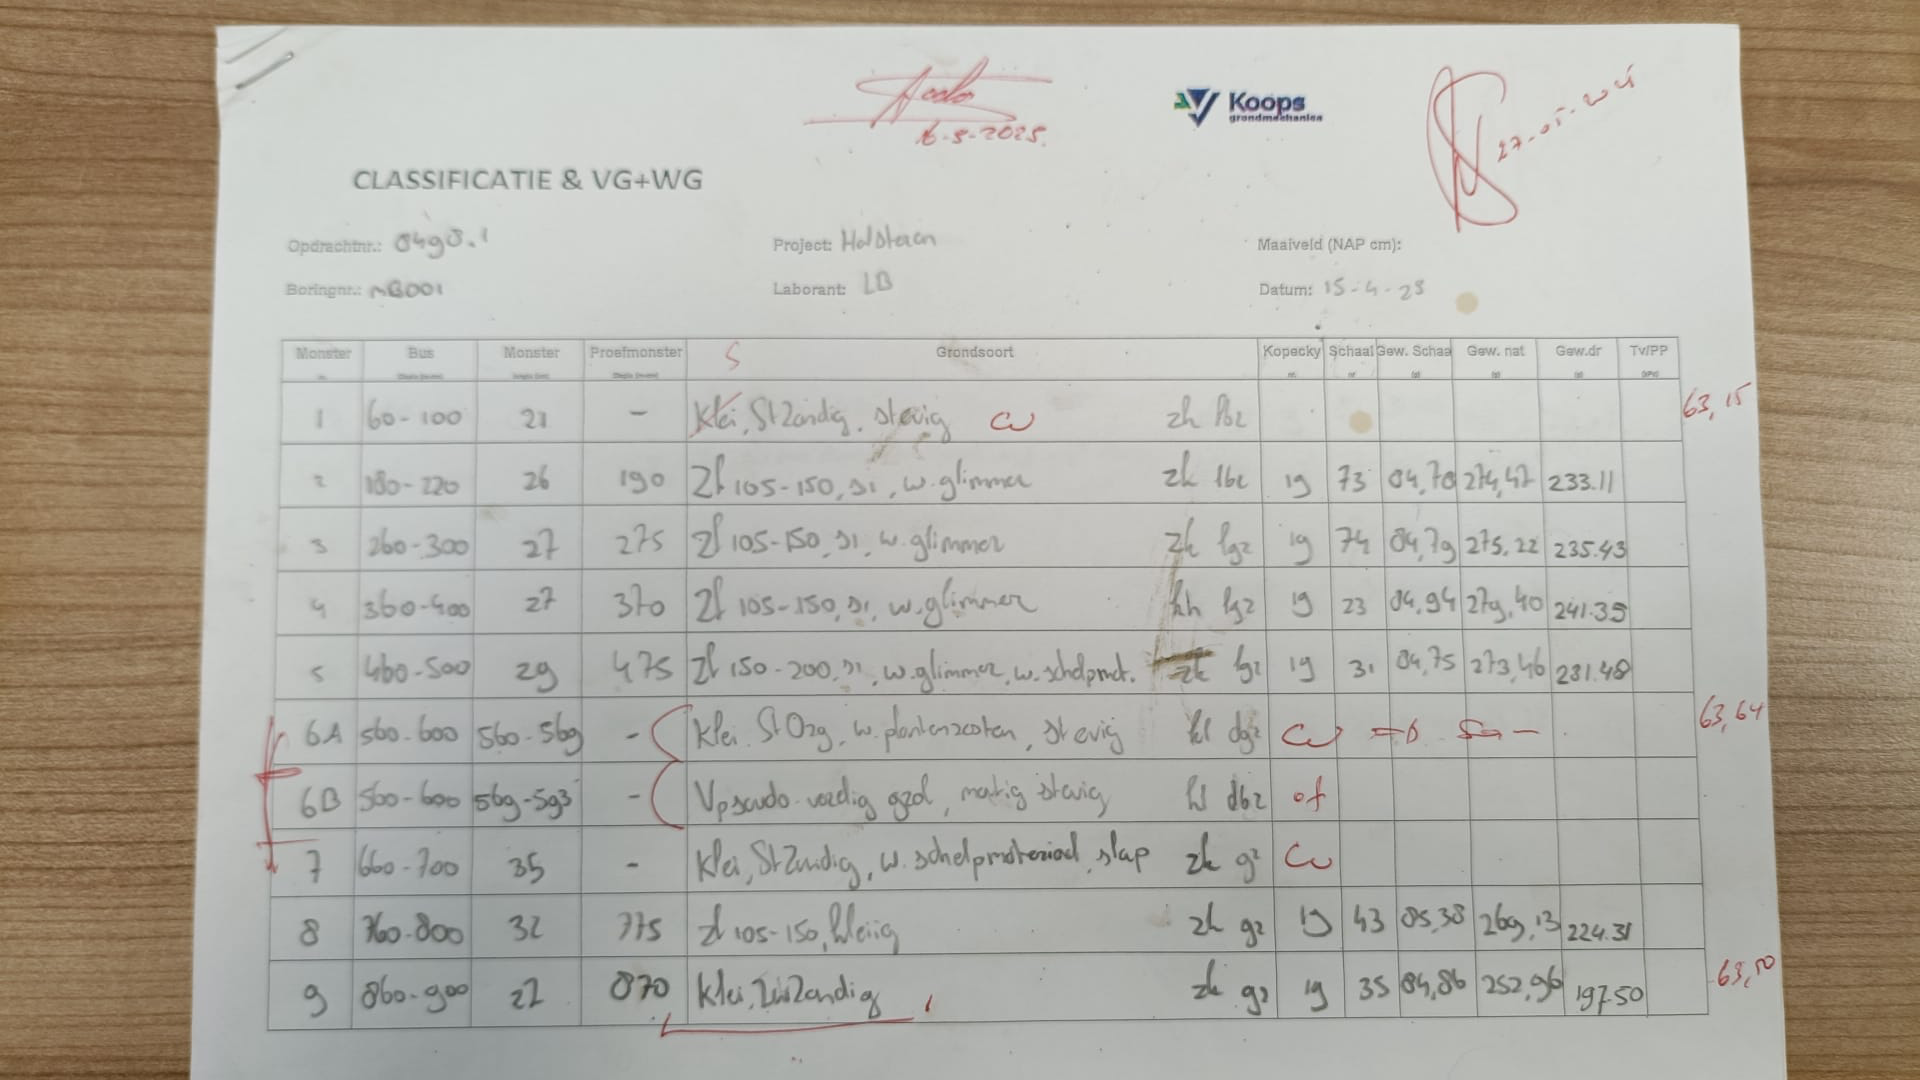 16-5-2025.
Koops
grondmechanica
CLASSIFICATIE & VG+WG
Opdrachtnr.: 0490.1
Project: Halsteren
Maaiveld (NAP cm):
Boringnr.: MB001
Laborant: LB
Datum: 15-4-25
Monster Bus Monster Proefmonster S Grondsoort Kopecky Schaal Gew. Schaal Gew. nat Gew.dr Tv/PP
1 60-100 21 - Klei, St Zandig, stevig cw zh
63,15
2 180-220 26 190 Zf 105-150, si, w. glimmer zk 19 73 84,70 274,42 233.11
3 260-300 27 275 Zf 105-150, si, w. glimmer zk lgz 19 74 84,79 275,22 235.43
4 360-400 27 370 Zf 105-150, si, w. glimmer kh lgz 19 23 84,94 279,40 241.35
5 460-500 29 475 Zf 150-200, si, w. glimmer, w. schelpmat. zk lgz 19 31 84,75 273,46 231.48
6A 560-600 560-569 - Klei. St Org, w. plantenresten, stevig kl dgz cw
63,64
6B 560-600 569-593 - Vpseudo-vezelig, matig stevig kl dbz of
7 660-700 35 - Klei, St Zandig, w. schelpmateriaal, slap zk gz cw
8 760-800 32 775 Zf 105-150, kleiig zk gz 19 43 85,38 269,13 224.31
9 860-900 22 870 Klei, Zandig zk gz 19 35 84,86 252,96 197.50
63,50